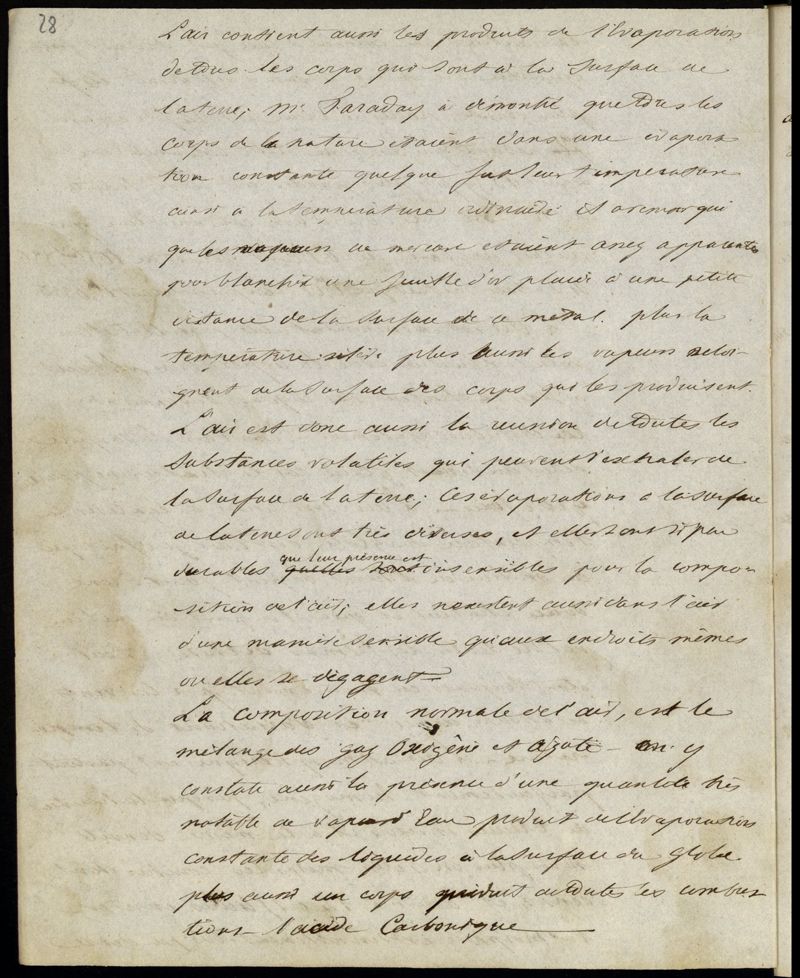 28
L'air contient aussi les produits de l'Evaporation
de tous les corps qui sont à la surface de
la terre; Mr Faraday à démontré que tous les
corps de la nature etaient dans une evapora
tion constante quelque fut leur temperature
aussi a la temperature ordinaire il a remarqué
que les vapeurs de mercure etaient assez apparentes
pour blanchir une feuille d'or placée à une petite
distance de la surface de ce metal. plus la
temperature s'élève plus aussi les vapeurs seloi-
gnent de la surface des corps qui les produisent.
L'air est donc aussi la reunion de toutes les
substances volatiles qui peuvent s'exhaler de
la surface de la terre; Ces évaporations a la surface
de la terre sont très diverses, et elles sont si peu
durables que leur présence est insensibles pour la compo
sition de l'air; elles n'existent aussi dans l'air
d'une manière sensible qu'aux endroits mêmes
ou elles se dégagent
La composition normale de l'air, est le
mélange des gaz Oxigène et Azote - on y
constate aussi la présence d'une quantité très
notable de vapeur d'Eau produit de l'Evaporation
constante des liquides à la surface du Globe
plus aussi un corps produit de toutes les combus
tions l'acide Carbonique